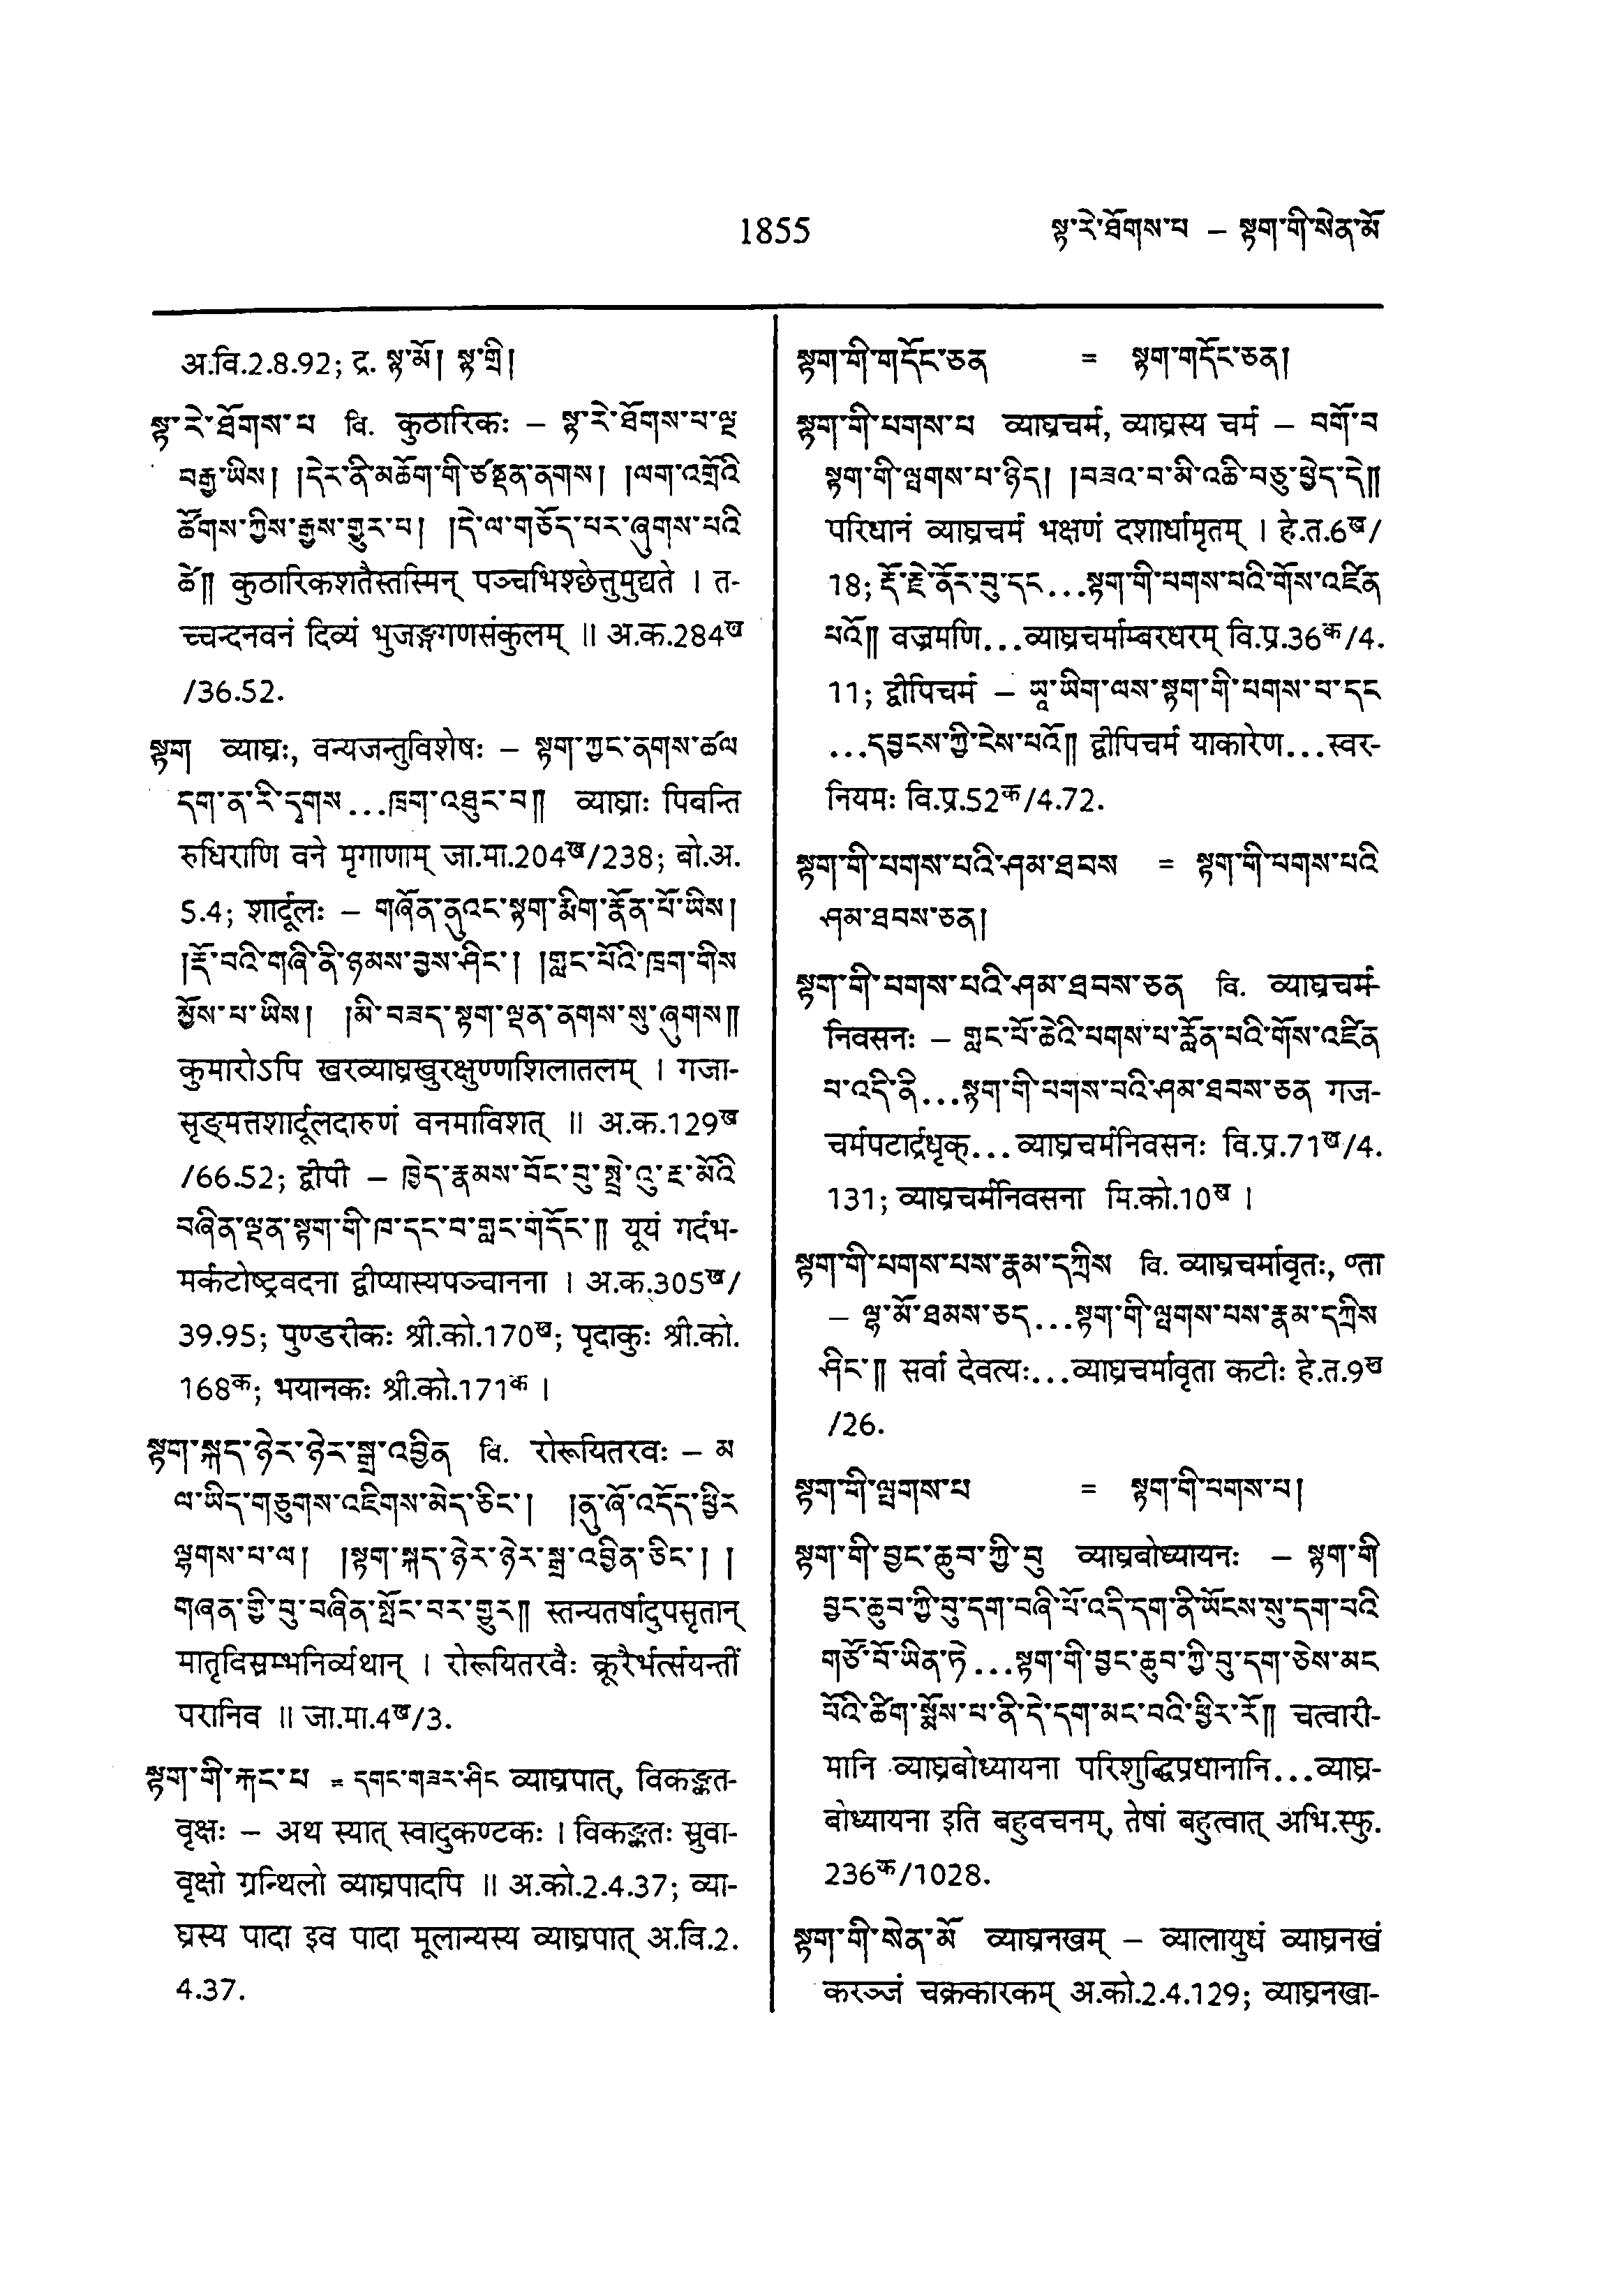 1855
སྟ་རེ་ཐོགས་པ – སྟག་གི་སེན་མོ
अ.वि.2.8.92; द्र. སྟ་མོ། སྟ་གྲི།
སྟ་རེ་ཐོགས་པ वि. कुठारिकः – སྟ་རེ་ཐོགས་པ་ལྔ
བརྒྱ་ཡིས། །དེར་ནི་མཆོག་གི་ཙནྡན་ནགས། །ལག་འགྲོའི
ཚོགས་ཀྱིས་རྒྱས་གྱུར་པ། །དེ་ལ་གཅོད་པར་ཞུགས་པའི
ཚེ༎ कुठारिकशतैस्तस्मिन् पञ्चभिश्छेत्तुमुद्यते । त-
च्चन्दनवनं दिव्यं भुजङ्गगणसंकुलम् ॥ अ.क.284ख
/36.52.
སྟག व्याघ्रः, वन्यजन्तुविशेषः – སྟག་ཀྱང་ནགས་ཚལ
དག་ན་རི་དྭགས...ཁྲག་འཐུང་བ༎ व्याघ्राः पिबन्ति
रुधिराणि वने मृगाणाम् जा.मा.204ख/238; बो.अ.
5.4; शार्दूलः – གཞོན་ནུའང་སྟག་རྨིག་རྣོན་པོ་ཡིས།
།རྡོ་བའི་གཞི་ནི་ཉམས་བྱས་ཤིང་། །གླང་པོའི་ཁྲག་གིས
མྱོས་པ་ཡིས། །མི་བཟད་སྟག་ལྡན་ནགས་སུ་ཞུགས༎
कुमारोऽपि खरव्याघ्रखुरक्षुण्णशिलातलम् । गजा-
सृङ्मत्तशार्दूलदारुणं वनमाविशत् ॥ अ.क.129ख
/66.52; द्वीपी – ཁྱེད་རྣམས་བོང་བུ་སྤྲེ་འུ་རྔ་མོའི
བཞིན་ལྡན་སྟག་གི་ཁ་དང་བ་གླང་གདོང་༎ यूयं गर्दभ-
मर्कटोष्ट्रवदना द्वीप्यास्यपञ्चानना । अ.क.305ख/
39.95; पुण्डरीकः श्री.को.170ख; पृदाकुः श्री.को.
168क; भयानकः श्री.को.171क ।
སྟག་སྐད་ཉེར་ཉེར་སྒྲ་འབྱིན वि. रोरूयितरवः – མ
ལ་ཡིད་གཅུགས་འཇིགས་མེད་ཅིང་། །ནུ་ཞོ་འདོད་ཕྱིར
ལྷགས་པ་ལ། །སྟག་སྐད་ཉེར་ཉེར་སྒྲ་འབྱིན་ཅིང་། །
གཞན་གྱི་བུ་བཞིན་སྤོང་བར་གྱུར༎ स्तन्यतर्षादुपसृतान्
मातृविस्रम्भनिर्व्यथान् । रोरूयितरवैः क्रूरैर्भर्त्सयन्तीं
परानिव ॥ जा.मा.4ख/3.
སྟག་གི་རྐང་པ = དགང་གཟར་ཤིང व्याघ्रपात्, विकङ्कत-
वृक्षः – अथ स्यात् स्वादुकण्टकः । विकङ्कतः स्रुवा-
वृक्षो ग्रन्थिलो व्याघ्रपादपि ॥ अ.को.2.4.37; व्या-
घ्रस्य पादा इव पादा मूलान्यस्य व्याघ्रपात् अ.वि.2.
4.37.
སྟག་གི་གདོང་ཅན = སྟག་གདོང་ཅན།
སྟག་གི་པགས་པ व्याघ्रचर्म, व्याघ्रस्य चर्म – བགོ་བ
སྟག་གི་ལྤགས་པ་ཉིད། །བཟའ་བ་མི་འཆི་བཅུ་ཕྱེད་དེ༎
परिधानं व्याघ्रचर्म भक्षणं दशार्धामृतम् । हे.त.6ख/
18; རྡོ་རྗེ་ནོར་བུ་དང...སྟག་གི་པགས་པའི་གོས་འཛིན
པའོ༎ वज्रमणि...व्याघ्रचर्माम्बरधरम् वि.प्र.36क/4.
11; द्वीपिचर्म – ཡཱ་ཡིག་ལས་སྟག་གི་པགས་པ་དང
...དབྱངས་ཀྱི་ངེས་པའོ༎ द्वीपिचर्म याकारेण...स्वर-
नियमः वि.प्र.52क/4.72.
སྟག་གི་པགས་པའི་ཤམ་ཐབས = སྟག་གི་པགས་པའི
ཤམ་ཐབས་ཅན།
སྟག་གི་པགས་པའི་ཤམ་ཐབས་ཅན वि. व्याघ्रचर्म-
निवसनः – གླང་པོ་ཆེའི་པགས་པ་རློན་པའི་གོས་འཛིན
པ་འདི་ནི...སྟག་གི་པགས་པའི་ཤམ་ཐབས་ཅན गज-
चर्मपटार्द्रधृक्...व्याघ्रचर्मनिवसनः वि.प्र.71ख/4.
131; व्याघ्रचर्मनिवसना मि.को.10ख ।
སྟག་གི་པགས་པས་རྣམ་དཀྲིས वि. व्याघ्रचर्मावृतः, ०ता
– ལྷ་མོ་ཐམས་ཅད...སྟག་གི་ལྤགས་པས་རྣམ་དཀྲིས
ཤིང་༎ सर्वा देवत्यः...व्याघ्रचर्मावृता कटीः हे.त.9ख
/26.
སྟག་གི་ལྤགས་པ = སྟག་གི་པགས་པ།
སྟག་གི་བྱང་ཆུབ་ཀྱི་བུ व्याघ्रबोध्यायनः – སྟག་གི
བྱང་ཆུབ་ཀྱི་བུ་དག་བཞི་པོ་འདི་དག་ནི་ཡོངས་སུ་དག་པའི
གཙོ་བོ་ཡིན་ཏེ...སྟག་གི་བྱང་ཆུབ་ཀྱི་བུ་དག་ཅེས་མང
པོའི་ཚིག་སྨོས་པ་ནི་དེ་དག་མང་བའི་ཕྱིར་རོ༎ चत्वारी-
मानि व्याघ्रबोध्यायना परिशुद्धिप्रधानानि...व्याघ्र-
बोध्यायना इति बहुवचनम्, तेषां बहुत्वात् अभि.स्फु.
236क/1028.
སྟག་གི་སེན་མོ व्याघ्रनखम् – व्यालायुधं व्याघ्रनखं
करञ्जं चक्रकारकम् अ.को.2.4.129; व्याघ्रनखा-